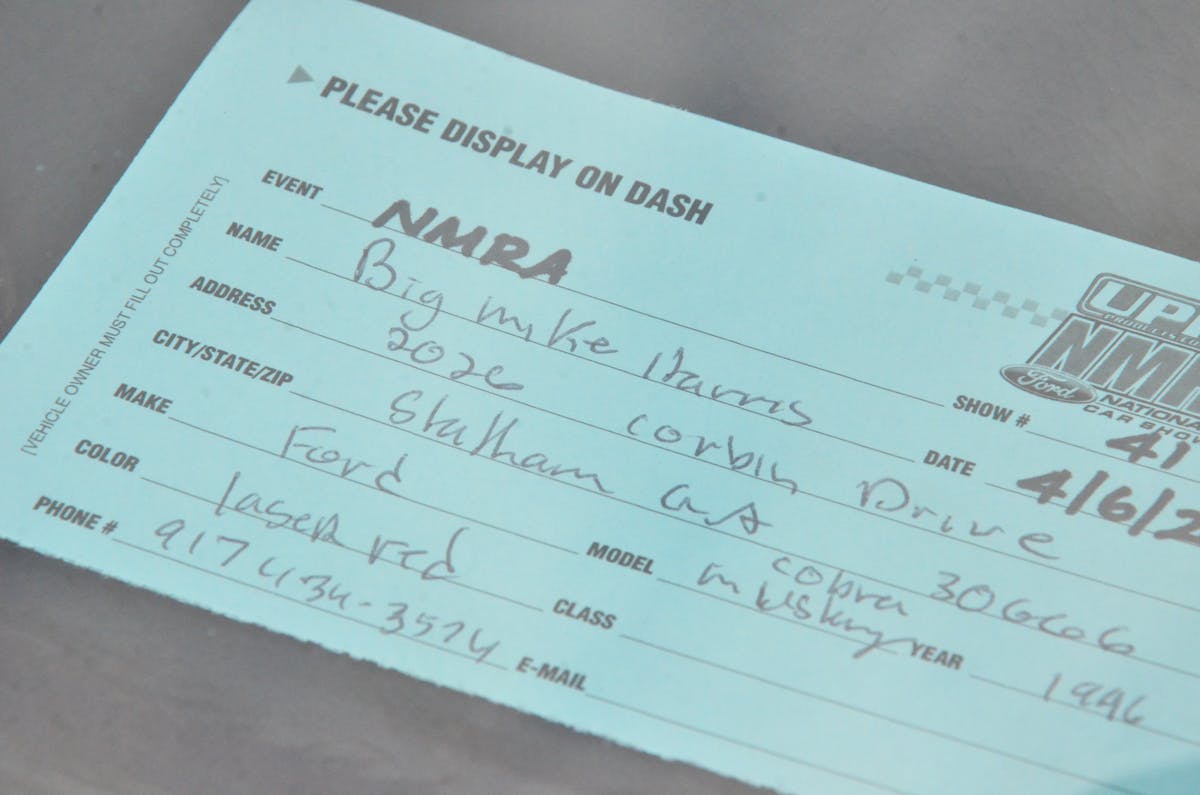 PLEASE DISPLAY ON DASH
[VEHICLE OWNER MUST FILL OUT COMPLETELY]
EVENT NMRA
NAME Big mike Harris
SHOW # 41
ADDRESS 2026 corbin Drive
DATE 4/6/2
CITY/STATE/ZIP Statham GA 30666
MAKE Ford
MODEL cobra
COLOR laser red
CLASS
YEAR 1996
PHONE # 917 434-3574
E-MAIL
UP
NM
Ford
NATIONA
CAR SHO